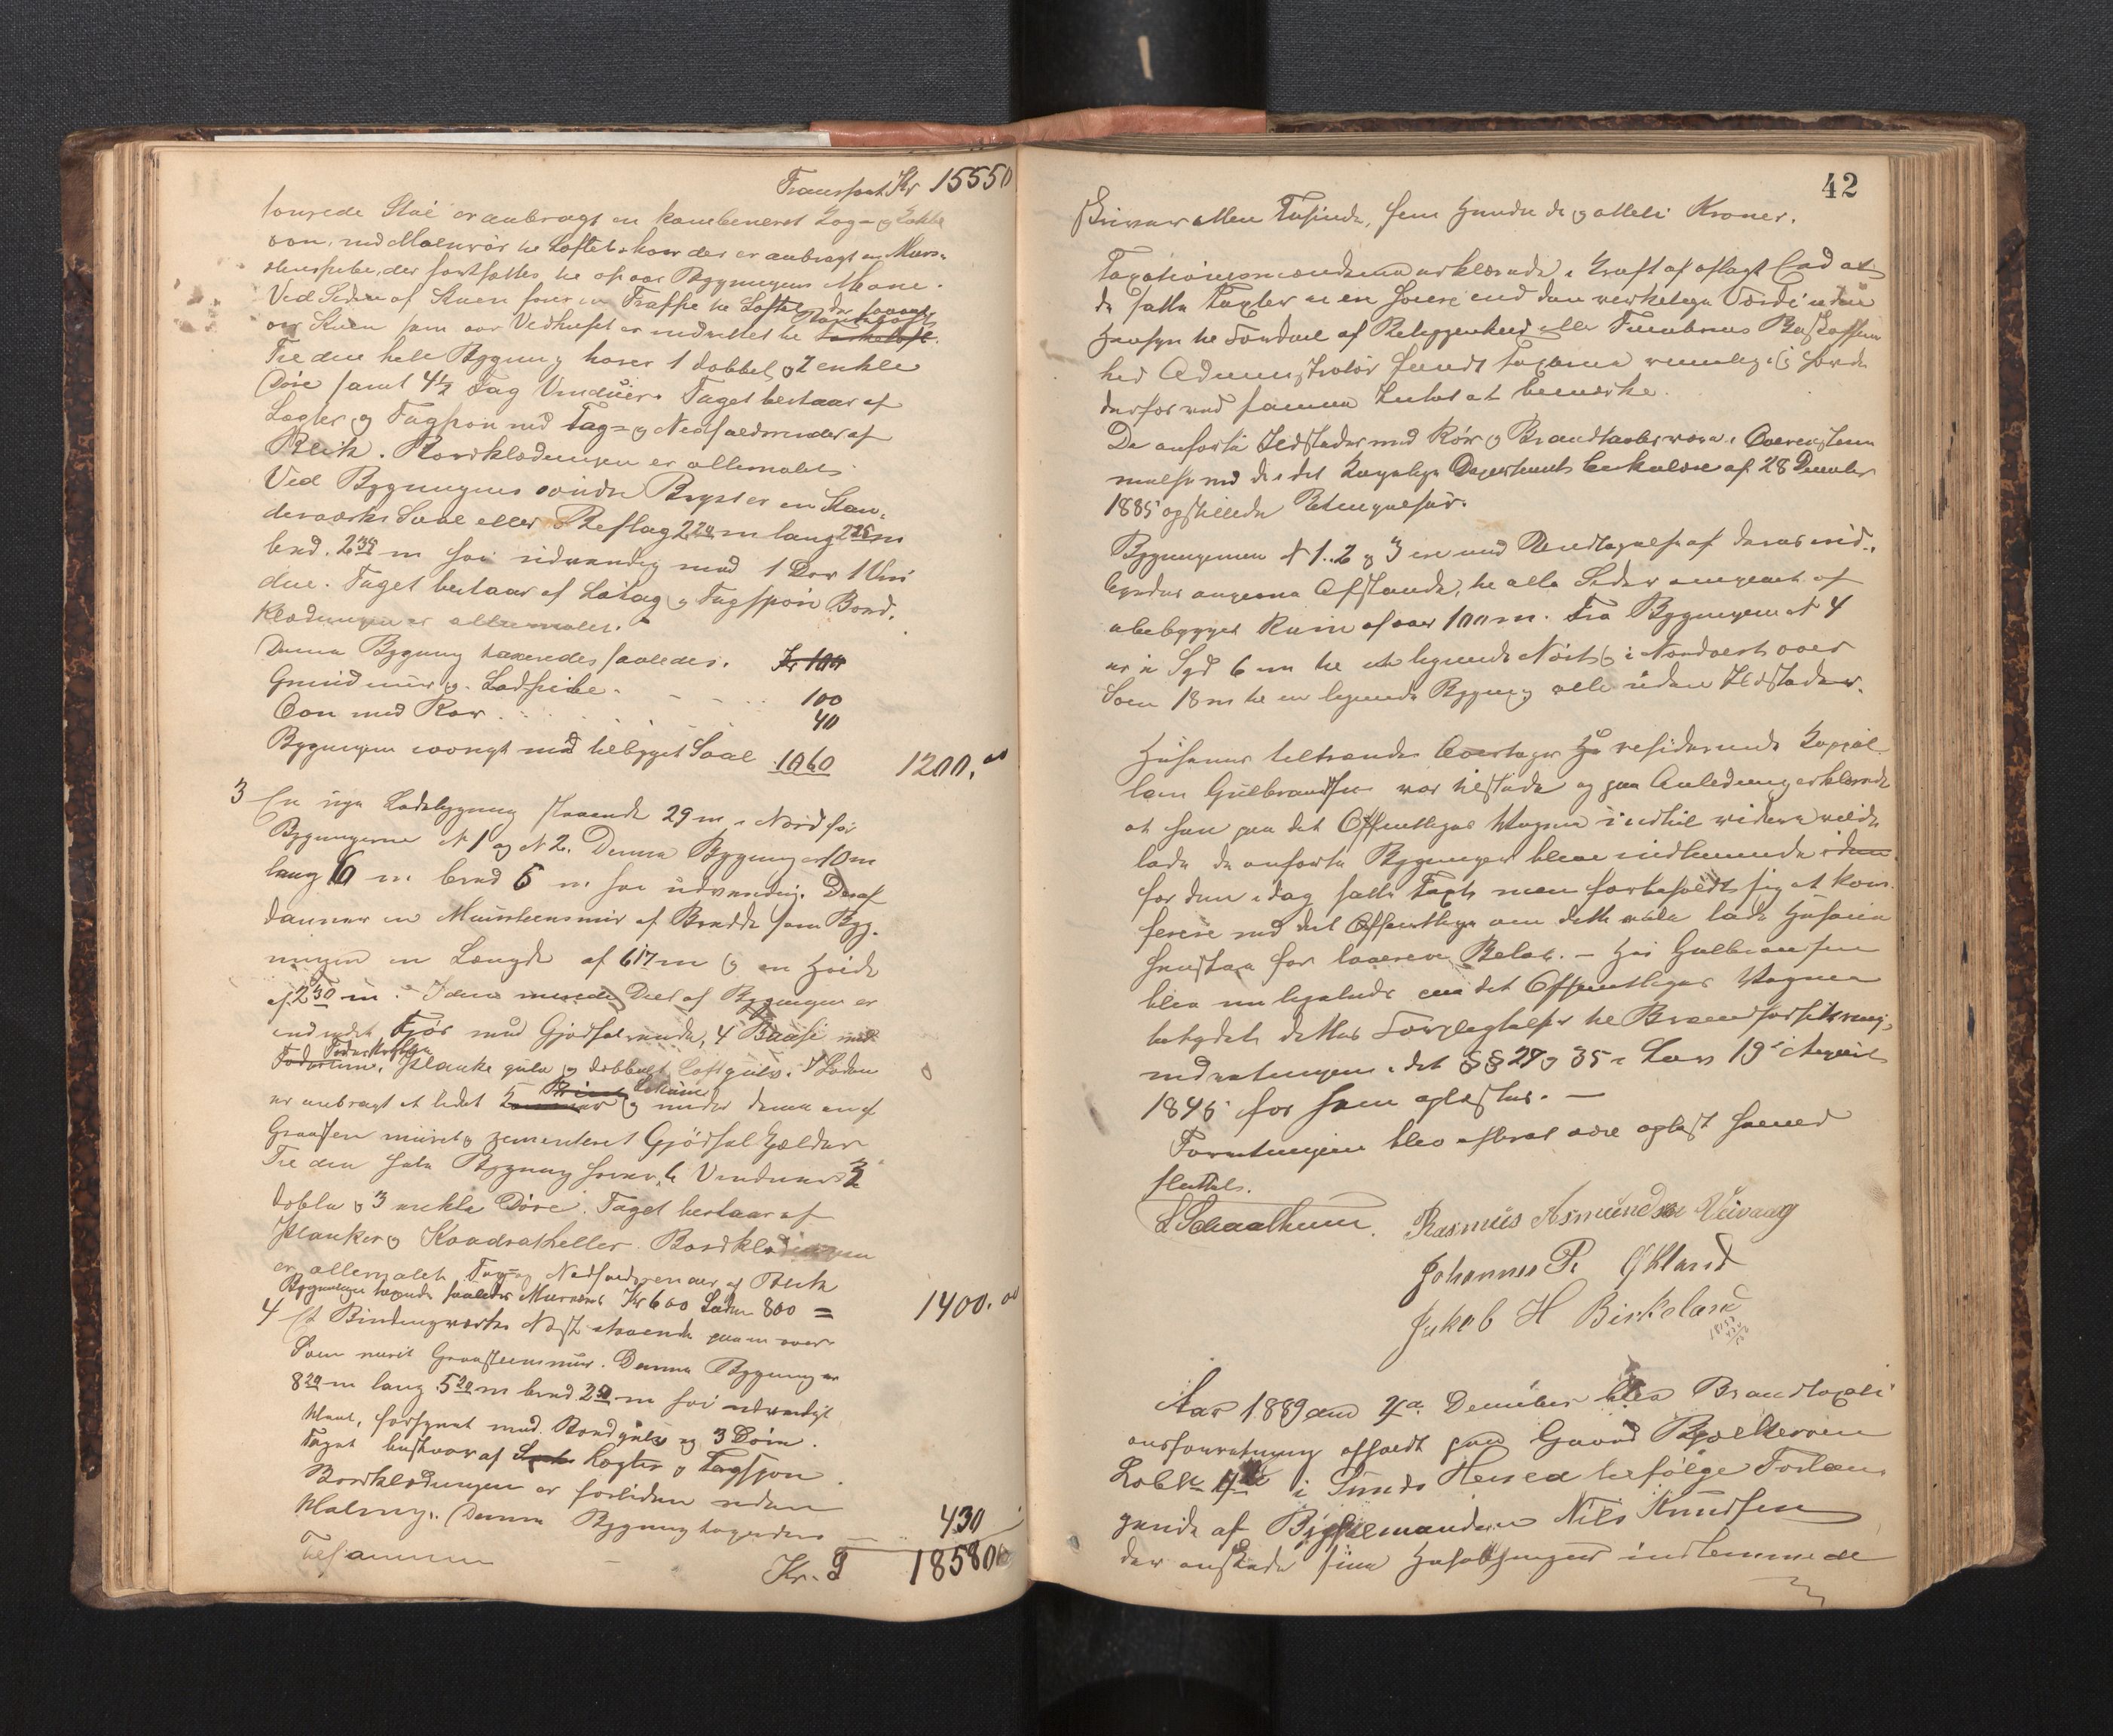 Transport Kr 15550
tourede Stue er anbragt en kombeneret Kog- og Kakke
ovn, med Malmrør til Loftet, hvor der er anbragt en Mur-
stenspibe, der fortsættes til op over Bygningens Møne.
Ved Siden af Stuen fører en Trappe til Loftet, der saavel
over Stuen som over Vedhuset er indrettet til Tørkeloft.
Til den hele Bygning hører 1 dobbel og 2 enkle
Døre samt 4½ Fag Vinduer. Taget bestaar af
Lægter og Tagspon med Tag- og Nedfaldsrender af
Blik. Bordklædningen er oliemalet.
Ved Bygningens søndre Bryst er en Sten-
derværks Sval eller Beslag 2 20 m lang 2 25 m
bred. 2 35 m høi udvendig med 1 Dør 1 Vin
due. Taget bestaar af Lætag og Tagspon Bord-
klædningen er oliemalet.
Denne Bygning taxeredes saaledes. Kr 100
Grundmur og Ladpibe 100
Ovn med Rør 40
Bygningen iøvrigt med tilbygget Sval 1060 1200,00
3 En nye Ladebygning staaende 29 m i Nord for
Bygningerne N 1 og N 2. Denne Bygning er 10 m
lang 16 m bred 6 m høi udvendig. Deraf
danner en Murstensmur af Bredde som Byg-
ningen en Længde af 6 17 m og en Høide
af 2 50 m. I den murede Deel af Bygningen er
indredet Fjøs med Gjødselrende, 4 Baase med
Foderkrybbe, Planke gulv og dobbelt Loftgulv. I Laden
er anbragt et lidet Lokum og under denne en af
Graasten muret og zementeret Gjødsel Kjelder
Til den hele Bygning hører 6 Vinduer 2
doble og 3 enkle Døre. Taget bestaar af
Planker og Kvadratheller. Bordklædningen
er oliemalet Tag- og Nedfaldsrender af Blik
Bygningen taxeredes saaledes Murværk Kr 600 Laden 800 = 1400.00
4 Et Bindingværks Nøst staaende paa en over
Søen muret Graastensmur. Denne Bygning er
8 20 m lang 5 20 m bred 2 50 m høi udvendigt
Maal, forsynet med Bordgulv og 3 Døre.
Taget bestaar af Lægter og Tagspon.
Bordklædningen er forsiden uden
Maling. Denne Bygning taxeredes 430
Tilsammen Kr. 18580
42
Skriver atten Tusinde, fem Hundrede og otteti Kroner.
Taxationsmændene erklærede, i Kraft af aflagt Eed at
de satte Taxter ei er høiere end den virkelige Værdi uden
Hensyn til Fordeel af Beliggenhed eller Tomternes Beskaffen
hed Administrator fandt Taxterne rimelige og havde
derfor ved samme Intet at bemærke.
De anførte Ildsteder med Rør og Brandtavler vare i Overenstem
melse med de i det Kongelige Departements Cirkulære af 28 December
1885 opstillede Betingelser.
Bygningerne N 1. 2 og 3 ere med Undtagelse af deres ind-
byrdes angivne Afstande, til alle Sider omgivet af
ubebygget Rum af over 100 m. Fra Bygningen N 4
er i Syd 6 m til et liggende Nøst og i Nordvest over
Søen 18 m til en liggende Bygning alle uden Ildsteder.
Husenes tiltrædende Overtager Hr residerende Kapel
lan Gulbrandsen var tilstede og paa Anledning erklærede
at han paa det Offentliges Vegne indtil videre vilde
lade de anførte Bygninger blive indlemmede
for den idag satte Taxt men forbeholdt sig at kon-
ferere med det Offentlige om dette vilde lade Husene
henstaa for lavere Beløb. – Hr Gulbrandsen
blev meddelt paa det Offentliges Vegne
betydet dettes Forpligtelser til Brandforsikrings-
indretningen i det §§ 27 og 35 i Lov 19 August
1845 for ham oplæstes. –
Forretningen blev efterat være oplæst hermed
sluttet.
S Schaathun. Rasmus Asmundsen Veivaag
Johannes P. Økland
Jakob H Birkeland
Aar 1889 den 7de December blev Brandtaxati
onsforretning afholdt paa Gaard Bjælkerøen
Løbe No i Sunds Herred ifølge Forlan-
gende af Bygselmanden Nils Knudsen
der ønskede sine Husebygninger indlemmede